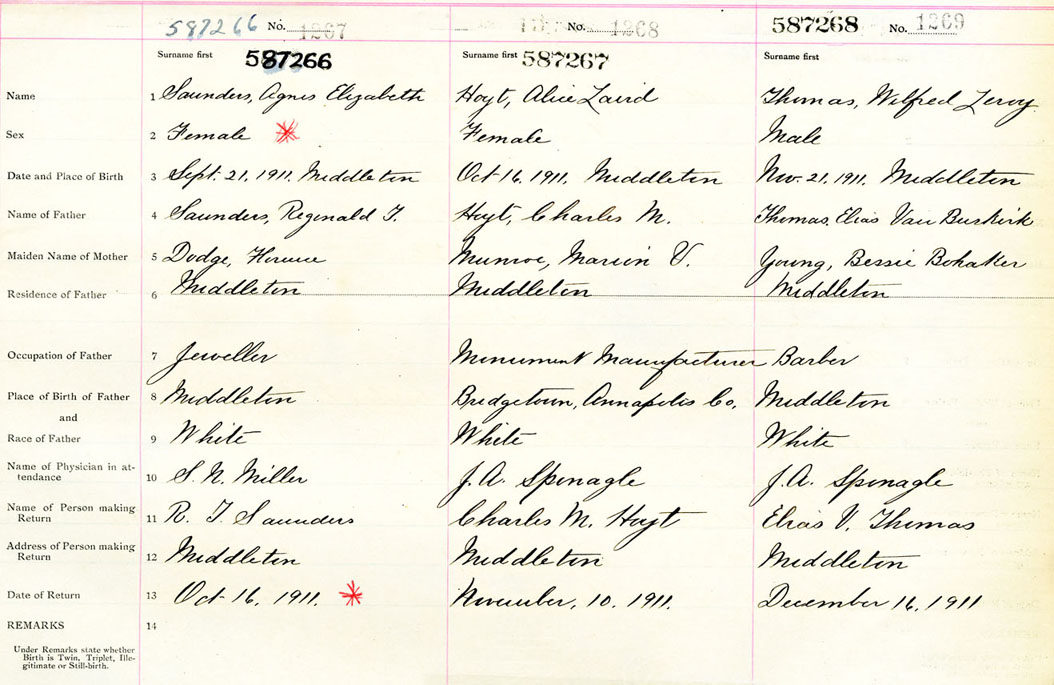 587266 No. 1267 No. 1268 587268 No. 1269
Surname first 587266 Surname first 587267 Surname first
Name 1 Saunders, Agnes Elizabeth Hoyt, Alice Laird Thomas, Wilfred Leroy
Sex 2 Female Female Male
Date and Place of Birth 3 Sept. 21, 1911. Middleton Oct 16, 1911. Middleton Nov. 21, 1911. Middleton
Name of Father 4 Saunders, Reginald F. Hoyt, Charles M. Thomas, Elias Van Buskirk
Maiden Name of Mother 5 Dodge, Florence Munroe, Marion V. Young, Bessie Bohaker
Residence of Father 6 Middleton Middleton Middleton
Occupation of Father 7 Jeweller Monument Manufacturer Barber
Place of Birth of Father 8 Middleton Bridgetown, Annapolis Co. Middleton
and
Race of Father 9 White White White
Name of Physician in at-
tendance 10 S. N. Miller J. A. Sponagle J. A. Sponagle
Name of Person making
Return 11 R. F. Saunders Charles M. Hoyt Elias V. Thomas
Address of Person making
Return 12 Middleton Middleton Middleton
Date of Return 13 Oct 16, 1911. November, 10. 1911. December 16, 1911
REMARKS 14
Under Remarks state whether
Birth is Twin, Triplet, Ille-
gitimate or Still-birth.